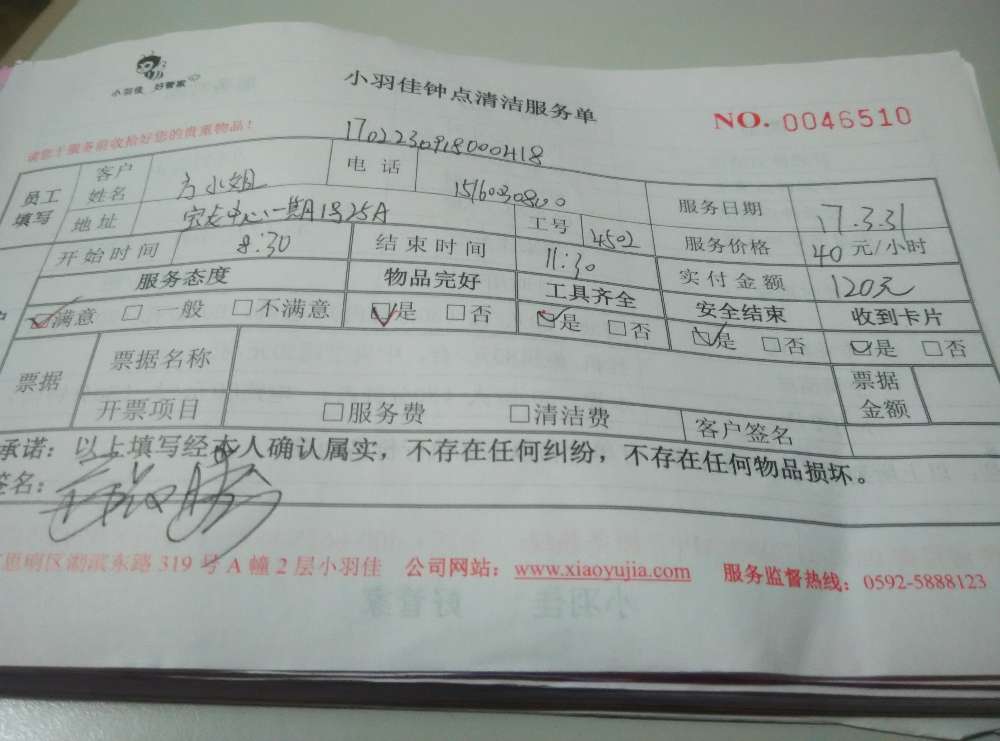 小羽佳 好管家
小羽佳钟点清洁服务单
NO. 0046510
请您于服务前收拾好您的贵重物品！
1702230918000418
员工填写 客户姓名 方小姐 电话 服务日期 17.3.31
地址 一期A1号25A 工号 4502 服务价格 40元/小时
开始时间 8:30 结束时间 11:30 实付金额 120元
服务态度 物品完好 工具齐全 安全结束 收到卡片
满意 一般 不满意 是 否 是 否 是 否 是 否
票据 票据名称 票据金额
开票项目 服务费 清洁费 客户签名
承诺：以上填写经本人确认属实，不存在任何纠纷，不存在任何物品损坏。
签名：
思明区湖滨东路 319 号 A 幢 2 层小羽佳 公司网站：www.xiaoyujia.com 服务监督热线：0592-5888123